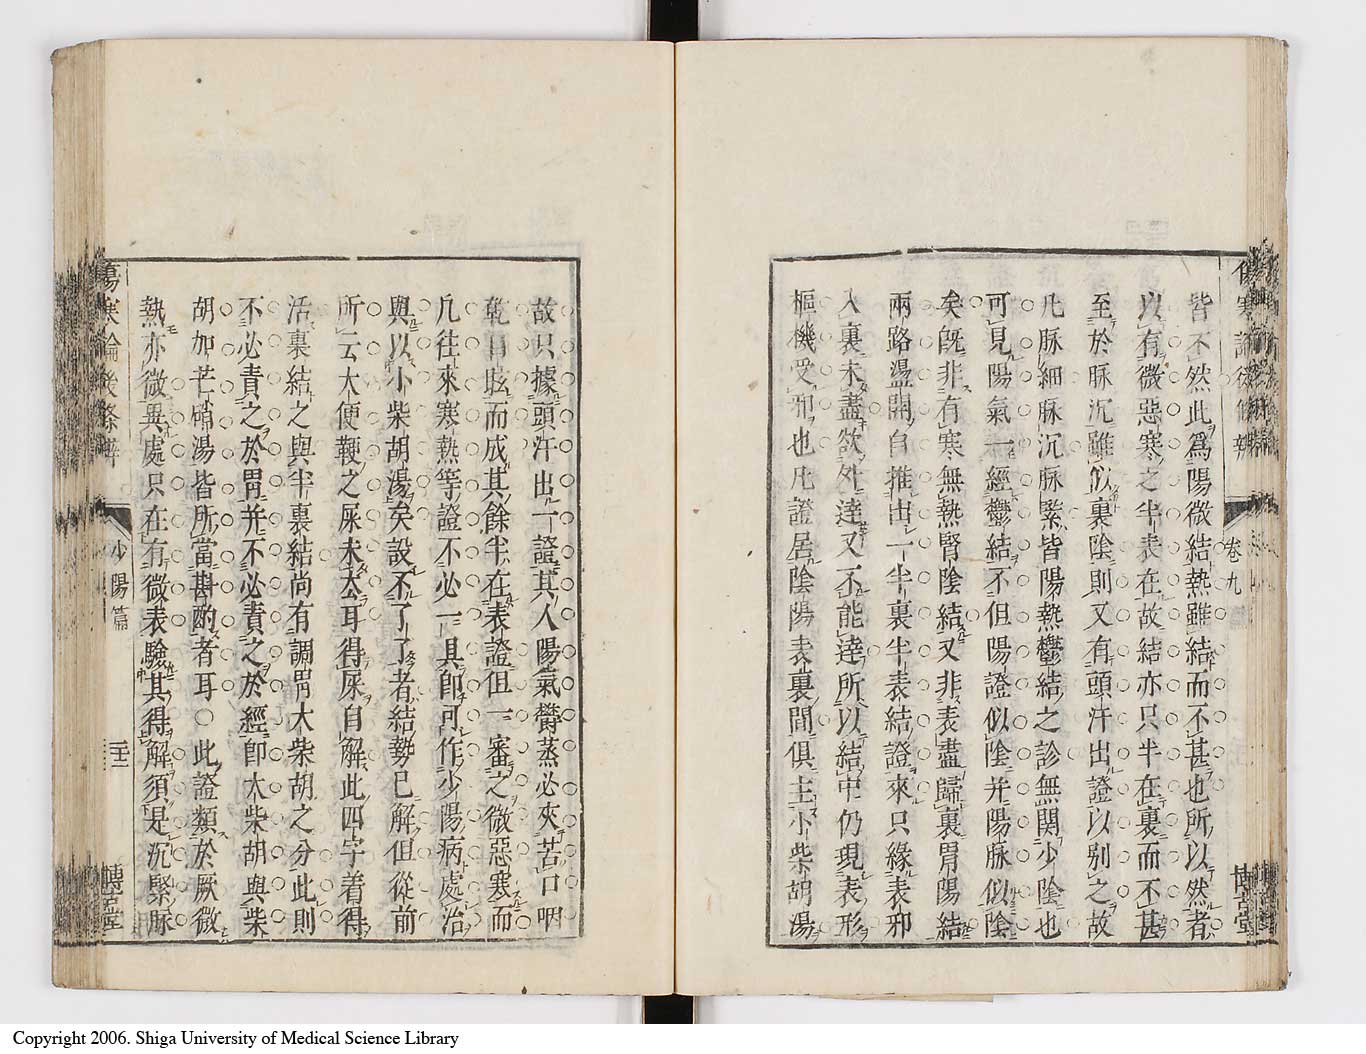 傷寒論後條辨 卷九 博古堂
皆不然此爲陽微結熱雖結而不甚也所以然者
以有微惡寒之半表在故結亦只半在裏而不甚
至於脉沉雖似裏陰則又有頭汗出證以别之故
凡脉細脉沉脉緊皆陽熱鬱結之診無関少陰也
可見陽氣一經鬱結不但陽證似陰并陽脉似陰
矣旣非有寒無熱腎陰結又非表盡歸裏胃陽結
兩路盪開自推出一半裏半表結證來只緣表邪
入裏未盡欲外達又不能達所以結中仍現表形
樞機受邪也凡證居陰陽表裏間俱主小柴胡湯
故只據頭汗出一證其人陽氣欝蒸必夾苦口咽
乾目眩而成其餘半在表證但一審之微惡寒而
凡往來寒熱等證不必一具即可作少陽病處治
與以小柴胡湯矣設不了了者結勢已解但從前
所云大便鞕之屎未去耳得屎自解此四字着得
活裏結之與半裏結尚有調胃大柴胡之分此則
不必責之於胃并不必責之於經卽大柴胡與柴
胡加芒硝湯皆所當斟酌者耳○此證類於厥微
熱亦微異處只在有微表驗其得解須是沉緊脉
傷寒論後條辨 少陽篇 三十二 博古堂
Copyright 2006. Shiga University of Medical Science Library